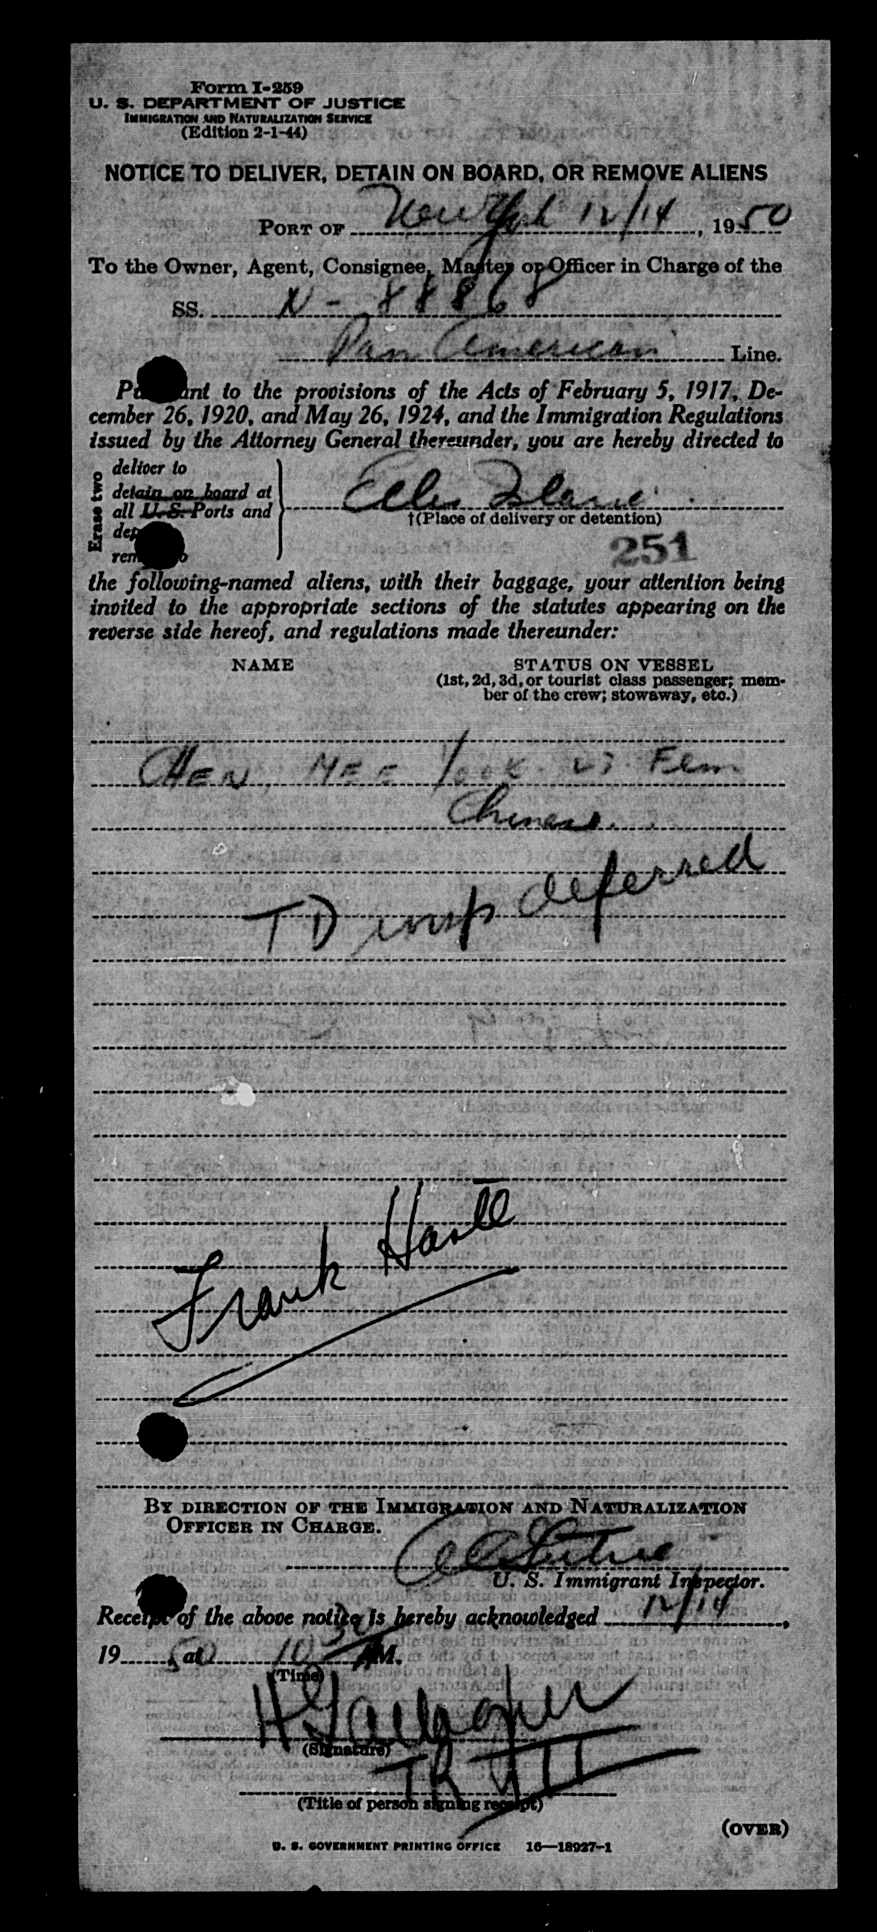 Form I-259
U. S. DEPARTMENT OF JUSTICE
IMMIGRATION AND NATURALIZATION SERVICE
(Edition 2-1-44)
NOTICE TO DELIVER, DETAIN ON BOARD, OR REMOVE ALIENS
PORT OF New York 12/14, 1950
To the Owner, Agent, Consignee, Master or Officer in Charge of the
SS. N-88868
Pan American Line.
Pursuant to the provisions of the Acts of February 5, 1917, De-
cember 26, 1920, and May 26, 1924, and the Immigration Regulations
issued by the Attorney General thereunder, you are hereby directed to
Erase two
deliver to
detain on board at
all U.S. Ports and
Ellis Island
†(Place of delivery or detention)
251
the following-named aliens, with their baggage, your attention being
invited to the appropriate sections of the statutes appearing on the
reverse side hereof, and regulations made thereunder:
NAME STATUS ON VESSEL
(1st, 2d, 3d, or tourist class passenger; mem-
ber of the crew; stowaway, etc.)
CHEN, MEE Yook 23 Fem
Chinese.
TD insp deferred
Frank
BY DIRECTION OF THE IMMIGRATION AND NATURALIZATION
OFFICER IN CHARGE.
U. S. Immigrant Inspector.
Receipt of the above notice is hereby acknowledged 12/14,
1950, at 10 30 AM.
(Time)
H Gallagher
(Signature)
(Title of person signing receipt)
(OVER)
U. S. GOVERNMENT PRINTING OFFICE 16—18927-1